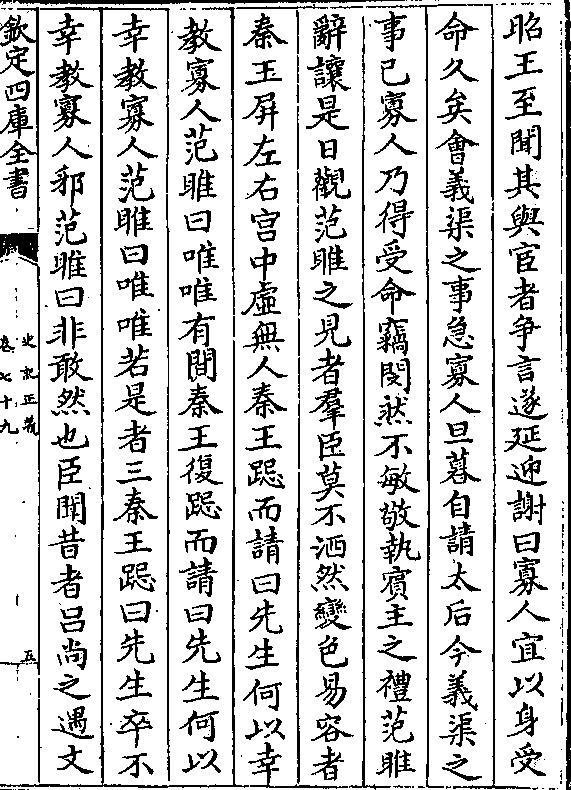 昭王至聞其與宦者争言遂延迎謝曰寡人宜以身受
命久矣會義渠之事急寡人旦暮自請太后今義渠之
事已寡人乃得受命竊閔然不敏敬執賓主之禮范雎
辭讓是日觀范雎之見者羣臣莫不洒然變色易容者
秦王屏左右宫中虛無人秦王跽而請曰先生何以幸
教寡人范雎曰唯唯有間秦王復跽而請曰先生何以
幸教寡人范雎曰唯唯若是者三秦王跽曰先生卒不
幸教寡人邪范雎曰非敢然也臣聞昔者吕尚之遇文
欽定四庫全書
史記正義
卷七十九
五